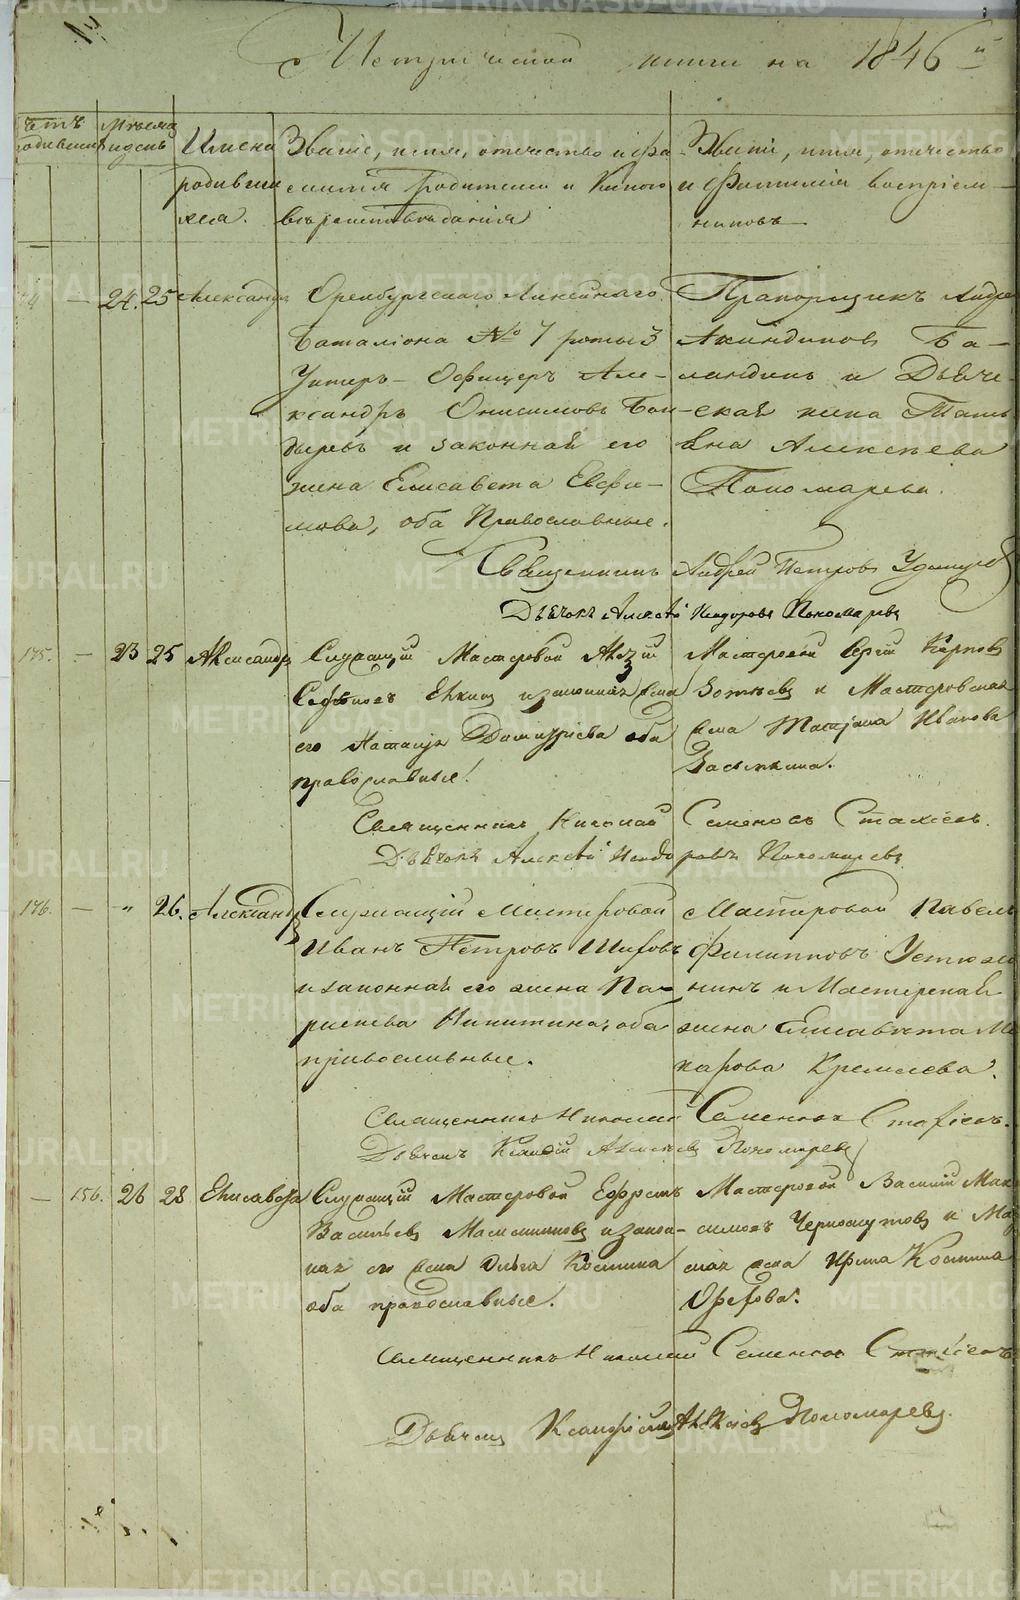 Метрической книги на 1846 й
Счетъ родившихся
Мѣсяцъ и день
Имена родившихся.
Званіе, имя, отечество и фамилія родителей и какого вѣроисповѣданія
Званіе, имя, отечество и фамилія воспріемниковъ
— 24. 25 Александръ
Оренбургскаго Линейнаго
Баталіона № 7 роты 3
Унтеръ-Офицеръ Але-
ксандръ Онисимовъ
и законной его
жена Елисавета Евфи-
мова, оба Православные.
Прапорщикъ Андрей
Акиндиновъ Ба-
ландинъ и Дьяче-
ская жена Тать
яна Алексѣева
Пономарева.
Священникъ Андрей Петровъ Удинцовъ
Дьячокъ Алексѣй Исидоровъ Пономаревъ
175. — 23 25 Александръ
Служащій Мастеровой
и законная жена
его Наталья Димитріева оба
православные!
Мастеровой Сергій Карповъ
Зотѣевъ и Мастеровская
жена Татіана Иванова
Засыпкина.
Священникъ Николай Семеновъ Стахіевъ.
Дьячокъ Алексѣй Исидоровъ Пономаревъ
176. — " 26. Александръ
Служащій Мастеровой
Иванъ Петровъ
и законной его жена Па-
раскева Никитина, оба
православные.
Мастеровой Павелъ
Филипповъ Устюжа
нинъ и Мастерская
жена Елисавета Ма
карова Кремлева.
Священникъ Николай Семеновъ Стахіевъ.
Дьячекъ Алексѣевъ Пономаревъ
— 156. 26 28 Елисавета
Служащій Мастеровой Ефремъ
Васильевъ и закон-
ная его жена Ольга Космина
оба православные!
Мастеровой Василій Мак
симовъ Черноскутовъ и Ма
ская жена Ирина Космина
Орехова.
Священникъ Николай Семеновъ Стахіевъ
Дьячекъ Алексѣевъ Пономаревъ.
METRIKI.GASO-URAL.RU